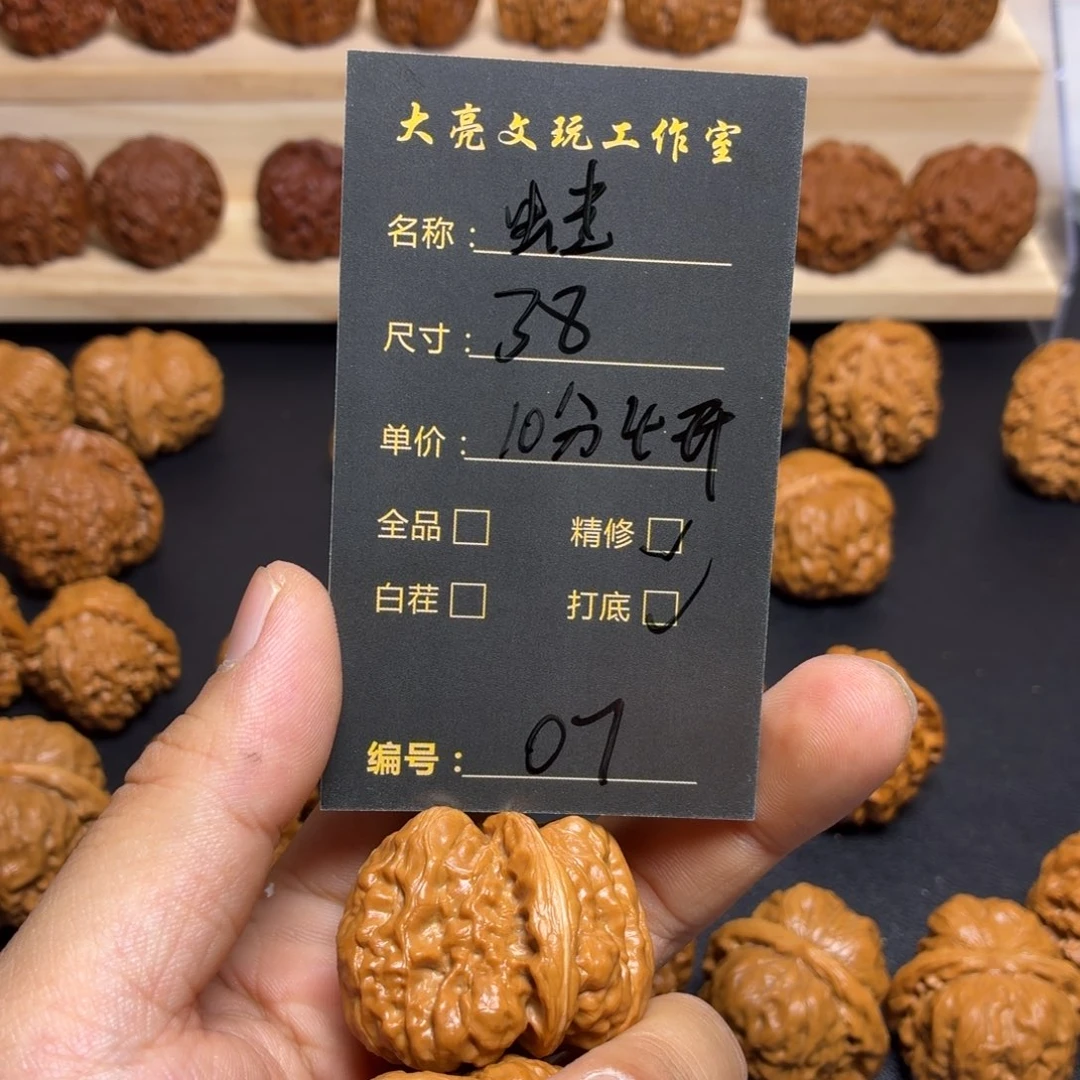 大亮文玩工作室
名称：蛙
尺寸：38
单价：10分长开
全品 精修
白茬 打底
编号：07